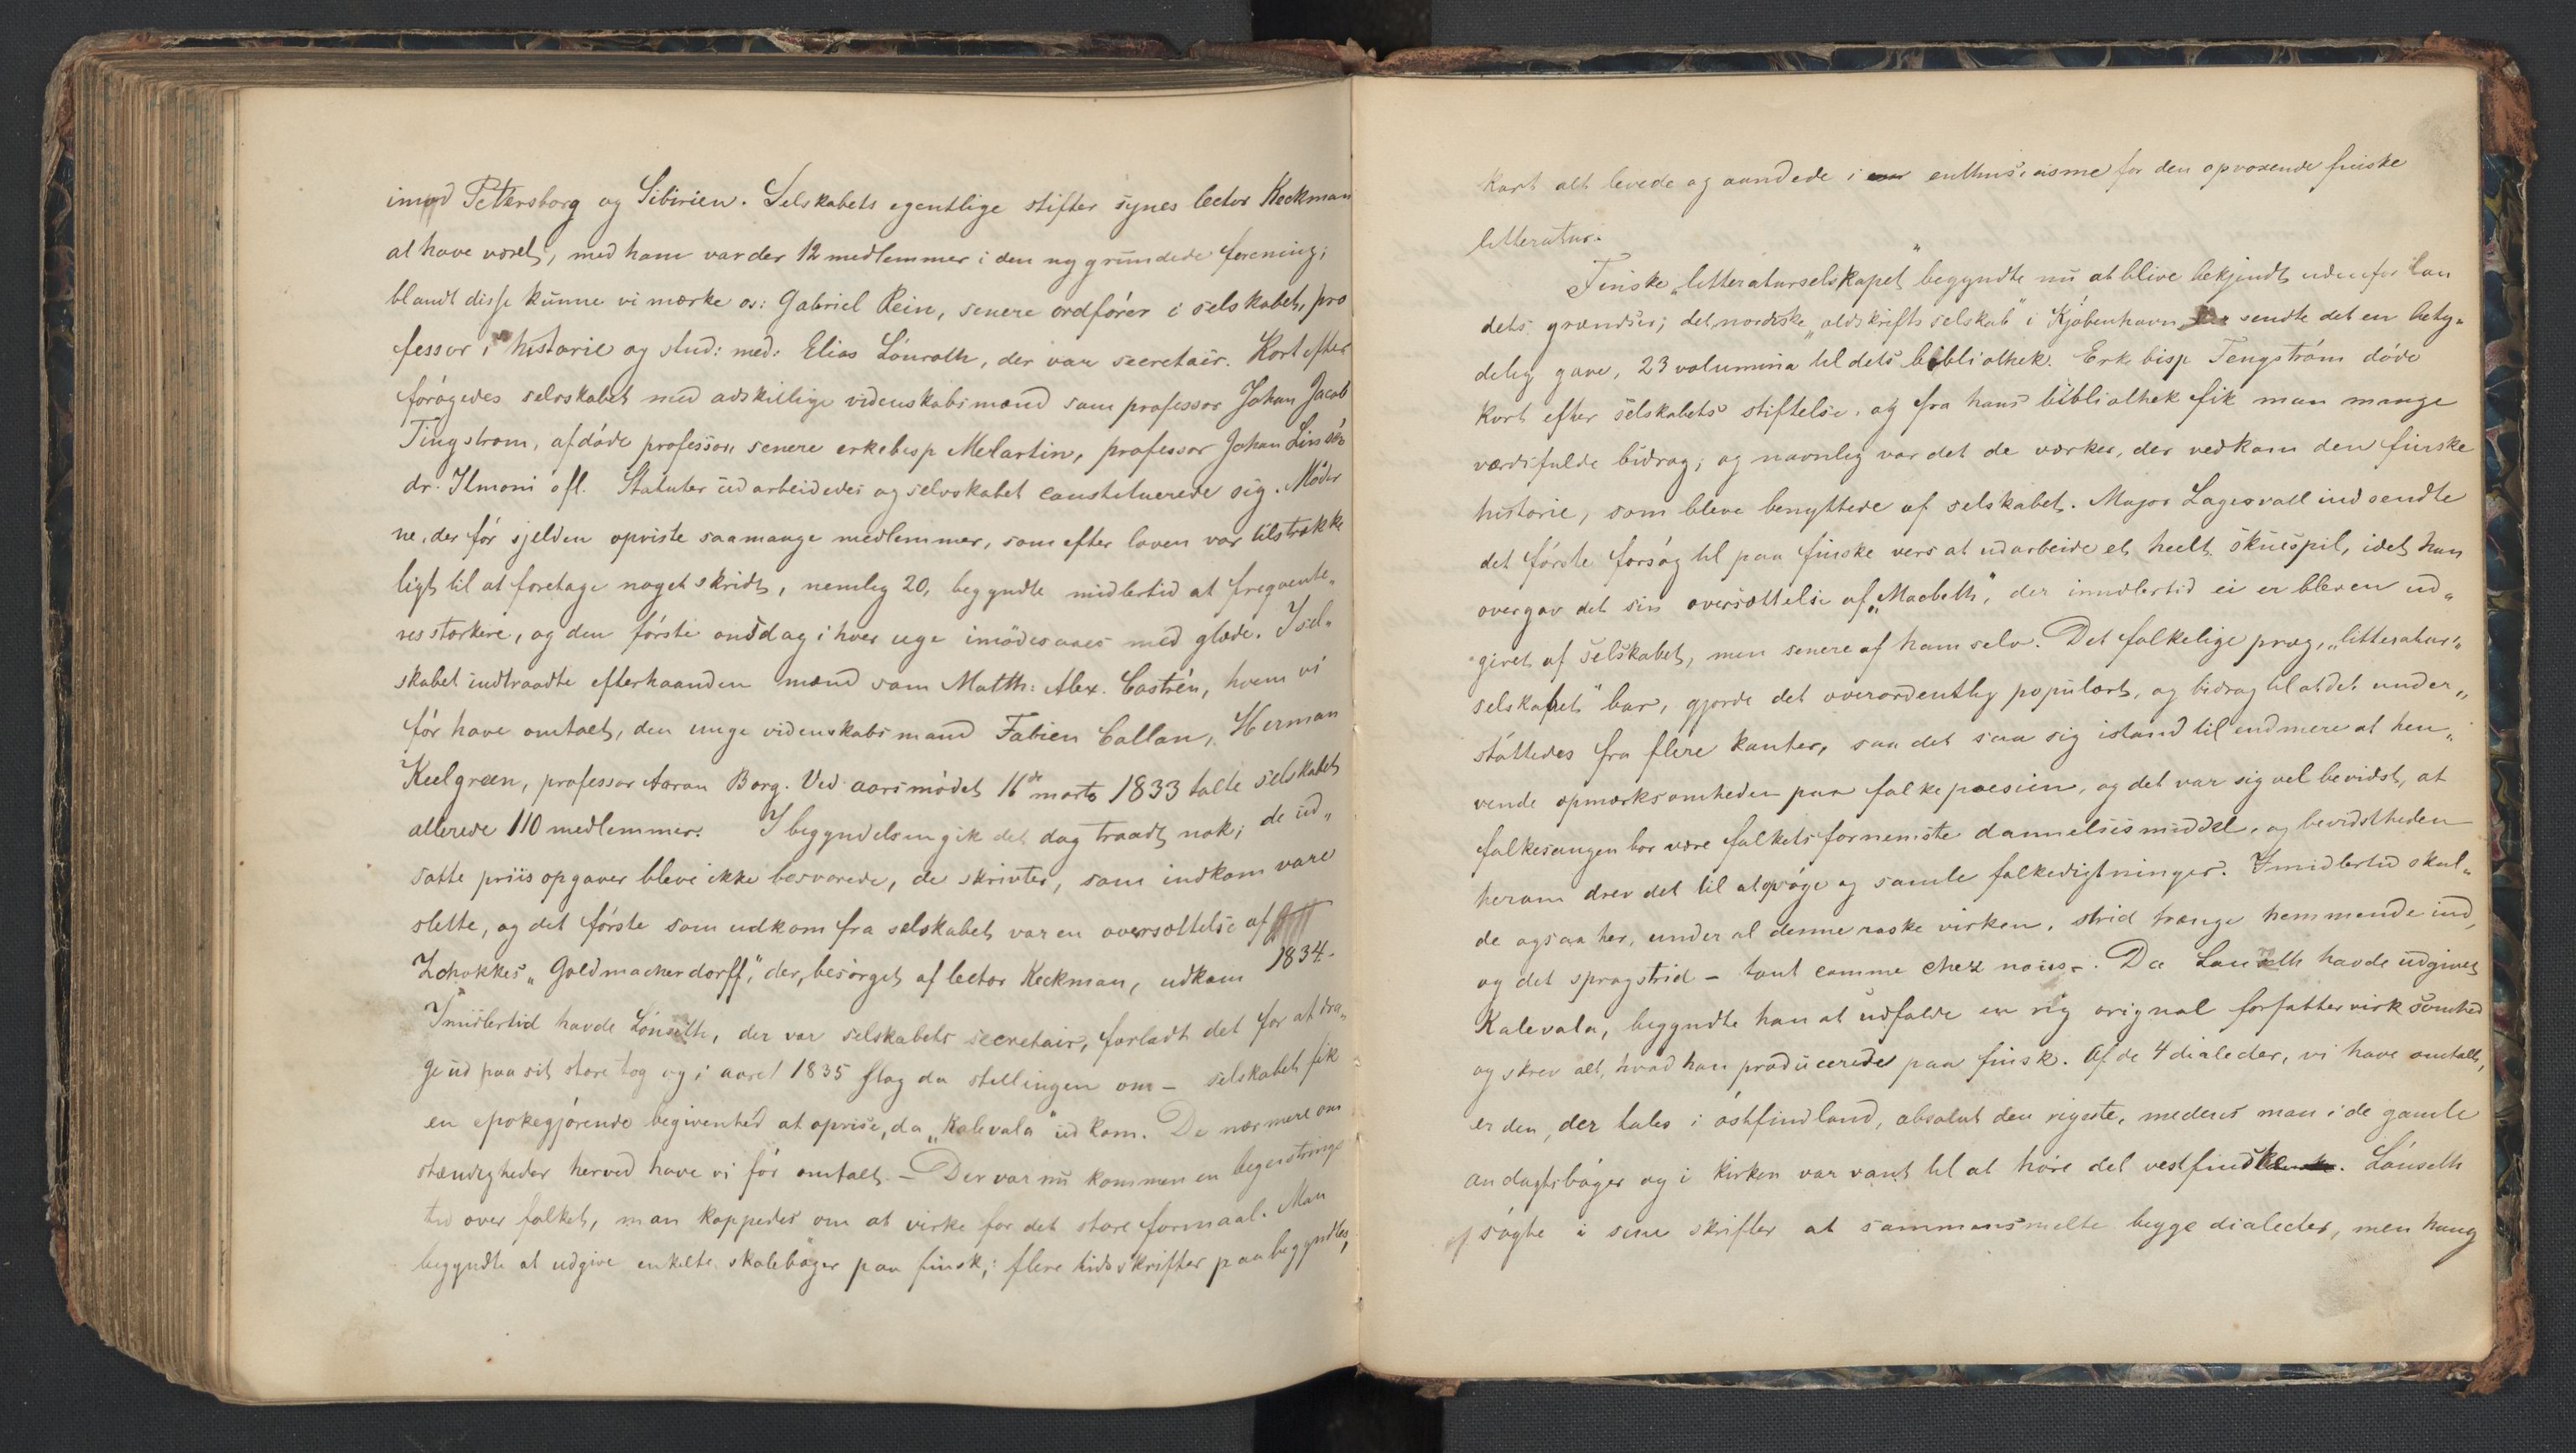 imod Petersborg og Sibirien. Selskabets egentlige stifter synes lector Keckman
at have været, med ham var der 12 medlemmer i den ny grundede forening;
blandt disse kunne vi mærke os: Gabriel Rein, senere ordförer i selskabet, pro
fessor i historie og stud: med: Elias Lönroth, der var secretair. Kort efter
forögedes selsskabet med adskillige videnskabsmænd som professor Johan Jacob
Tingstrom, afdöde professor, senere erkebisp Melartin, professor Johan Linsén
dr. Ilmoni ofl. Statuter udarbeidedes og selvskabet constituerede sig. Möder
ne, der för sjelden opviste saamange medlemmer, som efter loven var tilstrække
ligt til at foretage noget skridt, nemlig 20, begyndte midlertid at freqvente„
res stærkere, og den förste onsdag i hver uge imödesaaes med glæde. I sel„
skabet indtraadte efterhaanden mænd som Matth: Alex. Castrén, hvem vi
för have omtalt, den unge videnskabsmand Fabien Collan, Herman
Keelgreen, professor Aaron Borg. Ved aarsmödet 16de marts 1833 talte selskabet
allerede 110 medlemmer. I begyndelsen gik det dog traadt nok; de ud„
satte priisopgaver bleve ikke besvarede, de skrivter, som indkom vare
slette, og det förste som udkom fra selskabet var en oversættelse af
Zchokkes „Goldmacherdorff", der, besörget af lector Keckman, udkom 1834.
Imidlertid havde Lönroth, der var selskabets secretair, forladt det for at dra„
ge ud paa sit store tog og i aaret 1835 slog da stillingen om - selskabet fik
en epokegjörende begivenhed at opvise, da „Kalevala" udkom. De nærmere om
stændigheder herved have vi för omtalt. - Der var nu kommen en begeistrings
tid over folket, man kappedes om at virke for det store formaal. Man
begyndte at udgive enkelte skoleböger paa finsk; flere tidsskrifter paabegyndtes,
kort alt levede og aandede i enthusiasme for den opvoxende finske
litteratur.
Finske „litteraturselskapet" begyndte nu at blive bekjendt udenfor lan
dets grændser; det nordiske „oldskriftsselskab" i Kjöbenhavn sendte det en bety„
delig gave, 23 volumina til dets bibliothek. Erkebisp Tengström döde
kort efter selskabets stiftelse, og fra hans bibliothek fik man mange
værdifulde bidrag; og navnlig var det de værker, der vedkom den finske
historie, som bleve benyttede af selskabet. Major Lagervall indsendte
det förste forsög til paa finske vers at udarbeide et heelt skuespil, idet han
overgav det sin oversættelse af „Macbeth", der imidlertid ei er bleven ud„
givet af selskabet, men senere af ham selv. Det folkelige præg, „litteratur„
selskabet" bar, gjorde det overordentlig populært, og bidrog til at det under„
stöttedes fra flere kanter, saa det saa sig istand til endmere at hen„
vende opmærksomheden paa folkepoesien, og det var sig vel bevidst, at
folkesangen bör være folkets fornemste dannelsesmiddel, og bevidstheden
herom drev det til at söge og samle folkedigtninger. Imidlertid skul„
de ogsaa her, under al denne raske virken, strid trænge hemmende ind,
og det sprogstrid - tout comme chez nous -. Da Lönroth havde udgivet
Kalevala, begyndte han at udfolde en rig orignal forfattervirksomhed
og skrev alt, hvad han producerede paa finsk. Af de 4 dialecter, vi have omtalt,
er den, der tales i östfindland, absolut den rigeste, medens man i de gamle
andagtsböger og i kirken var vant til at höre det vestfindske. Lönroth
sögte i sine skrifter at sammensmelte begge dialecter, men hang